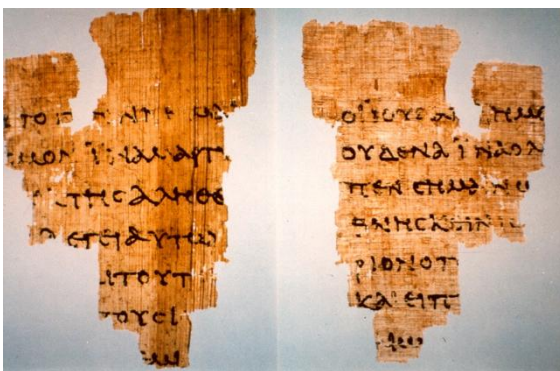 ΤΟ Γ ΝΝΗ
ΜΟΝ ΪΝΑΜΑΡΤΥ
ΤΗϹΑΛΗΘΕ
ΛΕΓΕΙΑΥΤΩ
ΙΤΟΥΤ
ΤΟΥϹΙ
ΟΙΪΟΥΔΑΙ ΗΜΕ
ΟΥΔΕΝΑΪΝΑΟΛ
ΠΕΝϹΗΜΑΙΝΩ
ΘΝΗϹΚΕΙΝΙϹ
ΡΙΟΝΟΠ
ΚΑΙΕΙΠ